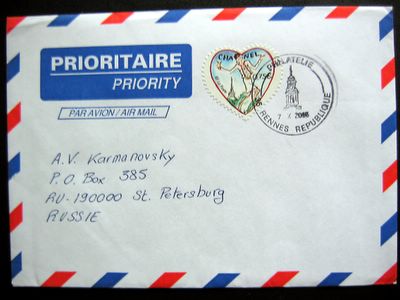 PRIORITAIRE
PRIORITY
PAR AVION / AIR MAIL
CHANEL
0,75€
PHILATELIE
35 RENNES REPUBLIQUE
A.V. Karmanovsky
P.O. Box 385
RU-190000 St. Petersburg
RUSSIE